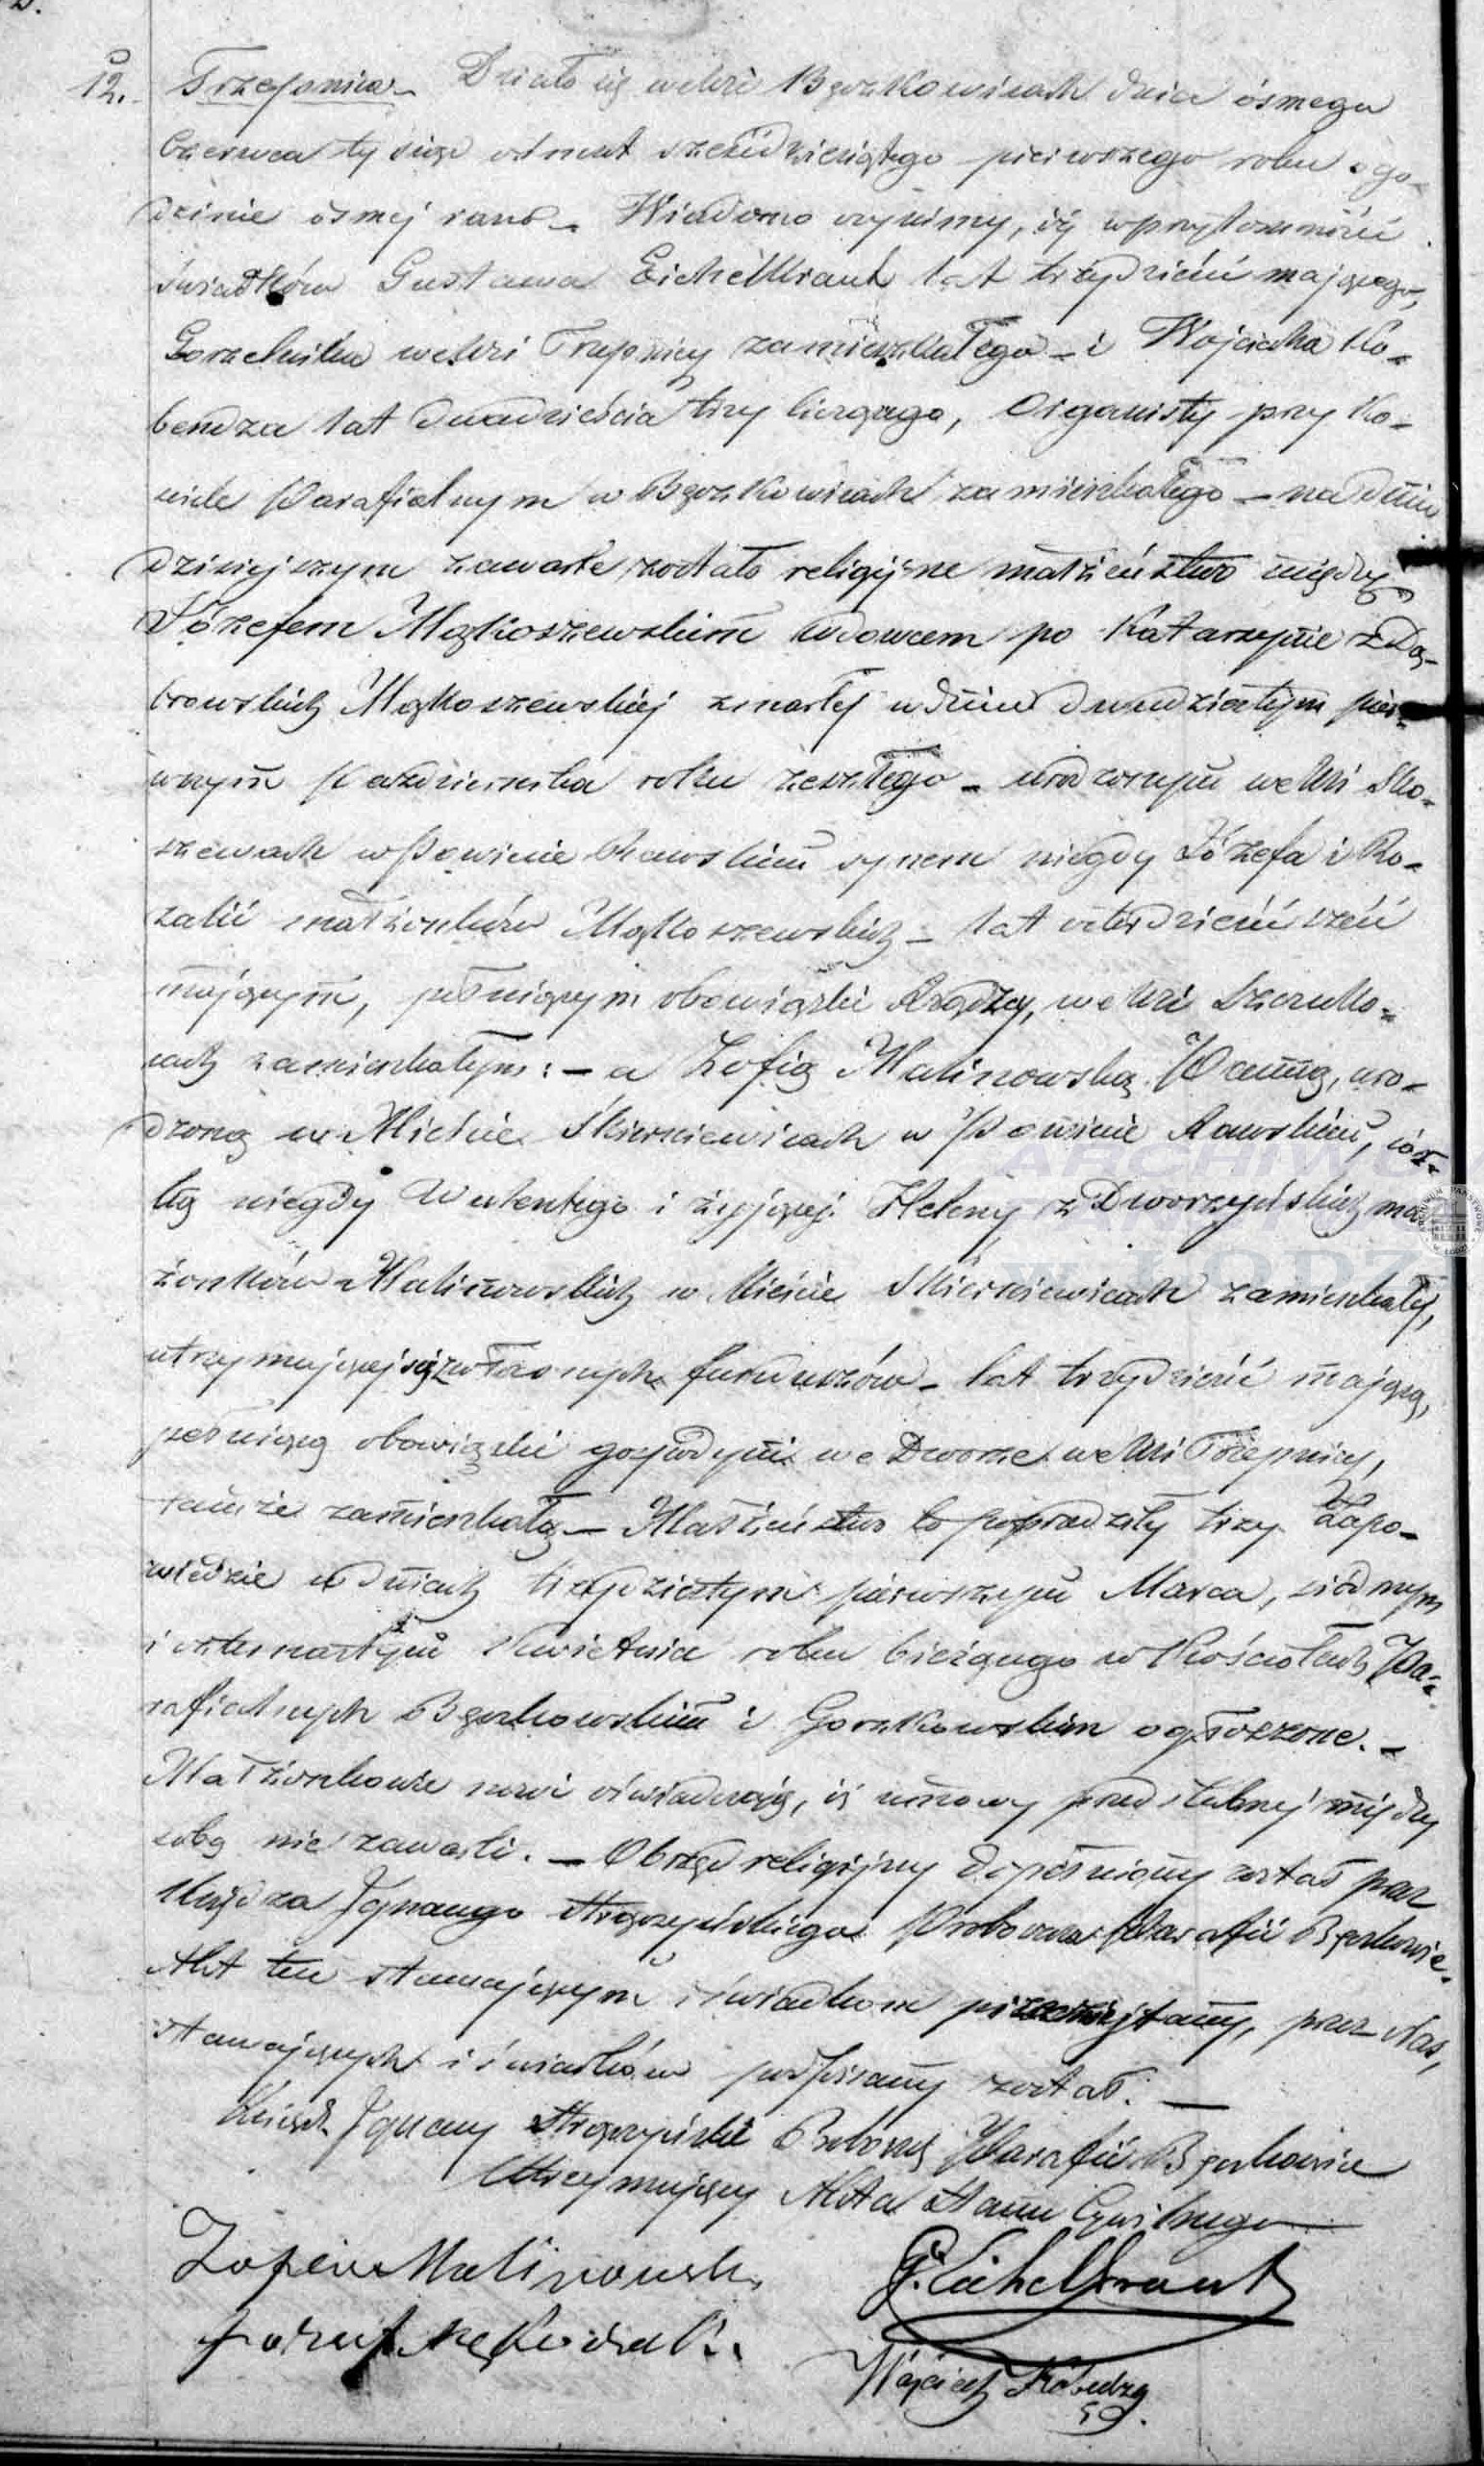 12. Trzepnica. Działo się we Wsi Bęczkowicach dnia ósmego
Czerwca tysiąc ośmset sześćdziesiątego pierwszego roku o go-
dzinie ósmej rano. Wiadomo czynimy, iż w przytomności
świadków Gustawa Eichelkraut lat trzydzieści mającego,
Gorzelnika we Wsi Trzepnicy zamieszkałego - i Wojciecha Ko-
bendza lat dwadzieścia trzy liczącego, Organisty przy Ko-
ściele Parafialnym w Bęczkowicach zamieszkałego - na dniu
dzisiejszym zawarte zostało religijne małżeństwo między
Józefem Mąkoszewskim wdowcem po Katarzynie z Dą-
browskich Mąkoszewskiej zmarłej w dniu dwudziestym pier-
wszym Października roku zeszłego - urodzonym we Wsi Sko-
szewach w Powiecie Rawskim synem niegdy Józefa i Ro-
zalii małżonków Mąkoszewskich - lat czterdzieści sześć
mającym, pełniącym obowiązki Rządzcy, we Wsi
zamieszkałym: - a Zofią Malinowską Panną, uro-
dzoną w Mieście Skierniewicach w Powiecie Rawskim, cór-
ką niegdy Walentego i żyjącej Heleny z Dworzyńskich mał
żonków Malinowskich w Mieście Skierniewicach zamieszkałej,
utrzymującej się z własnych funduszów - lat trzydzieści mającą,
pełniącą obowiązki gospodyni we Dworze we Wsi Trzepnicy,
tamże zamieszkałą - Małżeństwo to poprzedziły trzy Zapo-
wiedzie w dniach trzydziestym pierwszym Marca, siódmym
i czternastym Kwietnia roku bieżącego w Kościołach Pa-
rafialnych Bęczkowskim i Gorzkowskim ogłoszone. -
Małżonkowie nowi oświadczają, iż umowy przedślubnej między
sobą nie zawarli. - Obrzęd religijny dopełniony został przez
Księdza Ignacego Proboszcza Parafii Bęczkowice.
Akt ten stawającym i świadkom przeczytany, przez Nas,
stawających i świadków podpisany został. -
Ksiądz Ignacy Proboszcz Parafii Bęczkowice
Utrzymujący Akta Stanu Cywilnego
Zofia Malinowska G. Eichelkraut
Józef Mąkoszewski.
Wojciech Kobendza